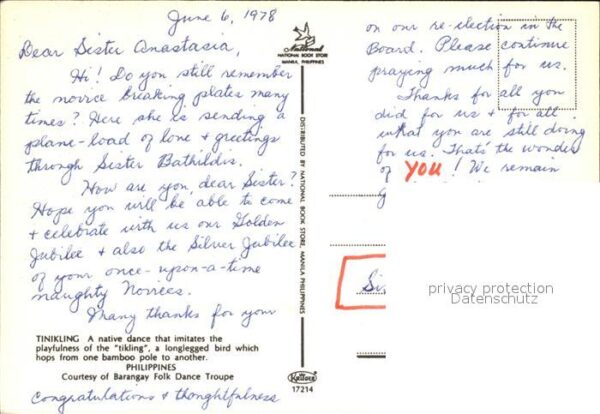 June 6, 1978
Dear Sister Anastasia,
Hi! Do you still remember
the novice breaking plates many
times? Here she is sending a
plane-load of love & greetings
through Sister Bathildis.
How are you, dear Sister?
Hope you will be able to come
& celebrate with us our Golden
Jubilee & also the Silver Jubilee
of your once-upon-a-time
naughty Novices.
Many thanks for your
TINIKLING A native dance that imitates the
playfulness of the "tikling", a longlegged bird which
hops from one bamboo pole to another.
PHILIPPINES
Courtesy of Barangay Folk Dance Troupe
congratulations & thoughtfulness
National
NATIONAL BOOK STORE
MANILA, PHILIPPINES
DISTRIBUTED BY NATIONAL BOOK STORE, MANILA PHILIPPINES
17214
on our re-election in the
Board. Please continue
praying much for us.
Thanks for all you
did for us & for all
what you are still doing
for us. That's the wonder
of YOU! We remain
privacy protection
Datenschutz